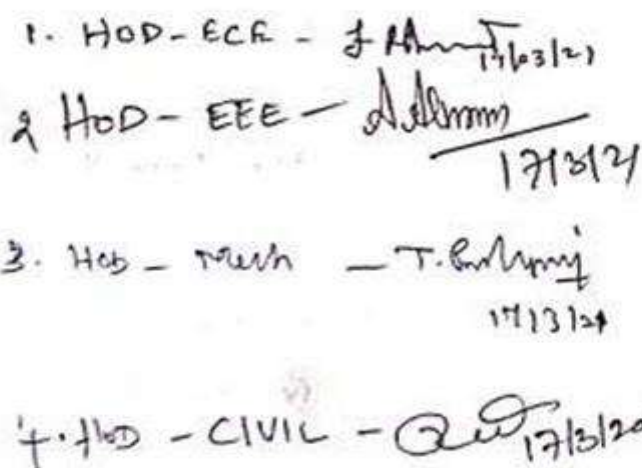 1. HOD - ECE - 17/03/21
2 HOD - EEE -
17/3/21
3. HOD - Mech - T.
17/3/21
4. HOD - CIVIL - 17/3/20